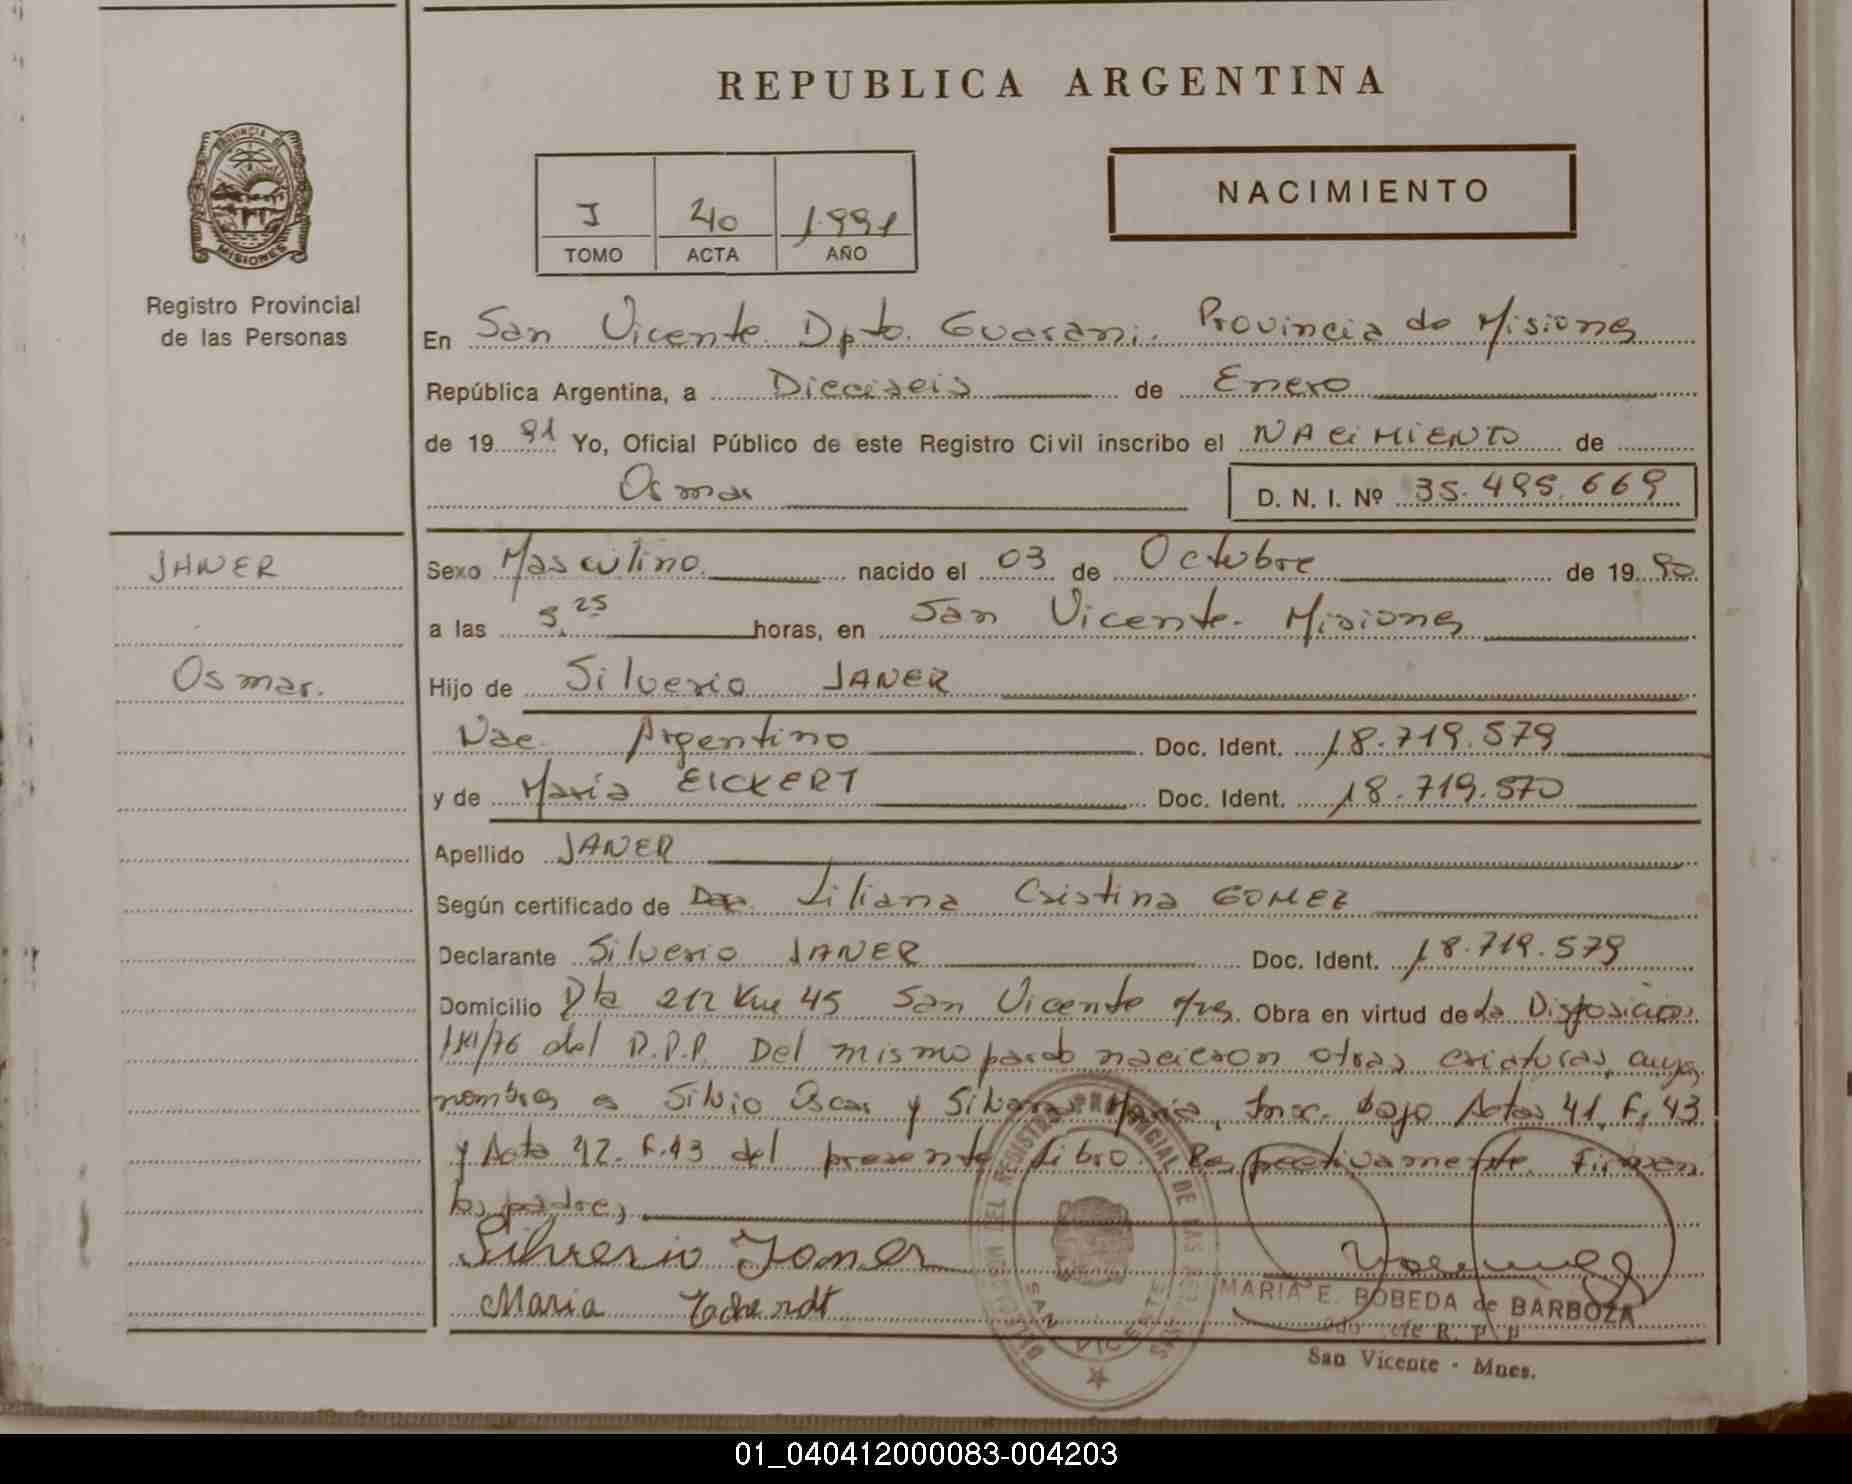 REPUBLICA ARGENTINA
PROVINCIA DE
MISIONES
Registro Provincial
de las Personas
I 40 1991
TOMO ACTA AÑO
NACIMIENTO
En San Vicente Dpto. Guarani. Provincia de Misiones
República Argentina, a Dieciseis de Enero
de 19 91 Yo, Oficial Público de este Registro Civil inscribo el NACIMIENTO de
Osmar D. N. I. Nº 35.495.669
JANER
Osmar.
Sexo Masculino nacido el 03 de Octubre de 19 90
a las 5,25 horas, en San Vicente - Misiones
Hijo de Silverio JANER
Nac. Argentino Doc. Ident. 18.719.579
y de Maria EICKERT Doc. Ident. 18.719.570
Apellido JANER
Según certificado de Liliana Cristina GOMEZ
Declarante Silverio JANER Doc. Ident. 18.719.579
Domicilio 212 Km 45 San Vicente Mnes. Obra en virtud de la Disposicion
/76 del R.P.P. Del mismo parto nacieron otras criaturas, cuyos
nombres es Silvio Oscar y Silvana Maria, Insc. bajo Actas 41, F. 43
y Acta 42. F. 43 del presente Libro. Respectivamente. Firman
los padres
Silverio Janer
Maria
DELEGACION DEL REGISTRO PROVINCIAL DE LAS PERSONAS
SAN VICENTE
MARIA E. BOBEDA de BARBOZA
R. P. P.
San Vicente - Mnes.
01_040412000083-004203